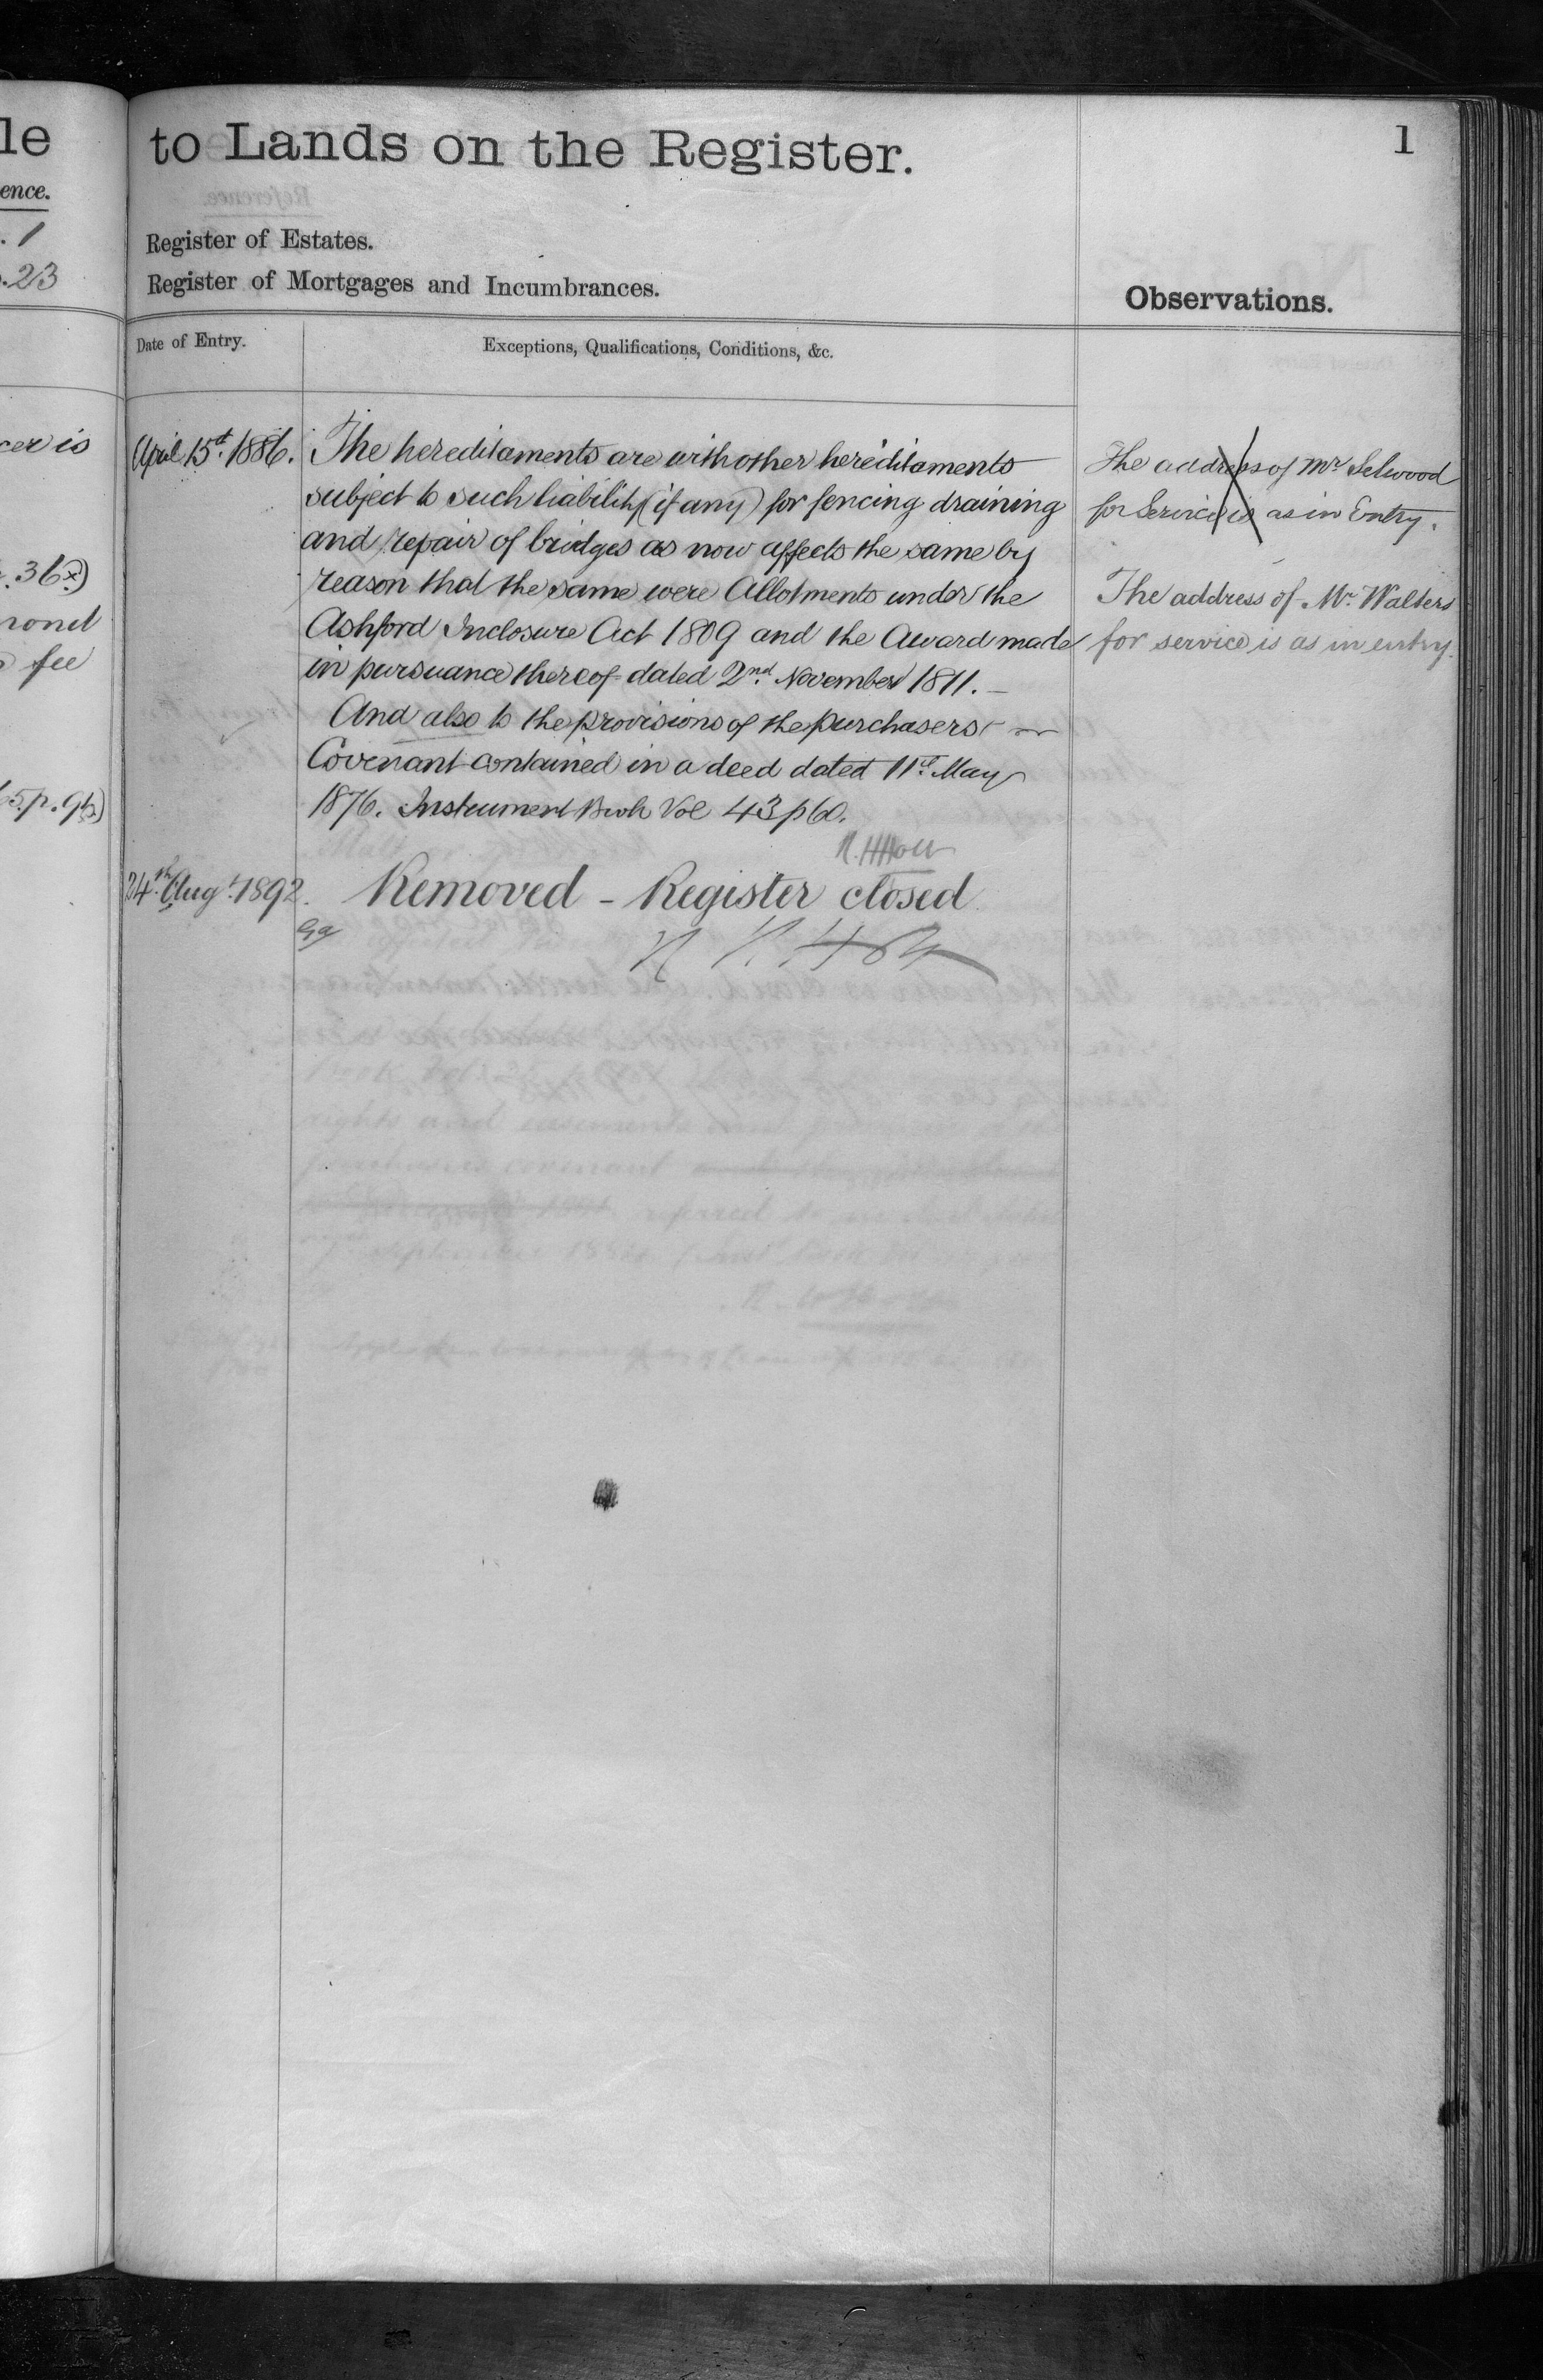 le
to Lands on the Register.
1
ence.
. 1
.23
Register of Estates.
Register of Mortgages and Incumbrances.
Observations.
Date of Entry.
Exceptions, Qualifications, Conditions, &c.
cer is
April 15th. 1886.
The hereditaments are with other hereditaments
subject to such liability (if any) for fencing draining
and repair of bridges as now affects the same by
reason that the same were Allotments under the
Ashford Inclosure Act 1809 and the Award made
in pursuance thereof dated 2nd November 1811.
And also to the provisions of the purchasers
Covenant contained in a deed dated 11th May
1876. Instrument Book Vol 43 p 60.
The address of Mr Selwood
for Service is as in Entry.
The address of Mr. Walters
for service is as in entry.
. 36
fee
5. p. 9
24th. Augt. 1892.
Removed - Register closed